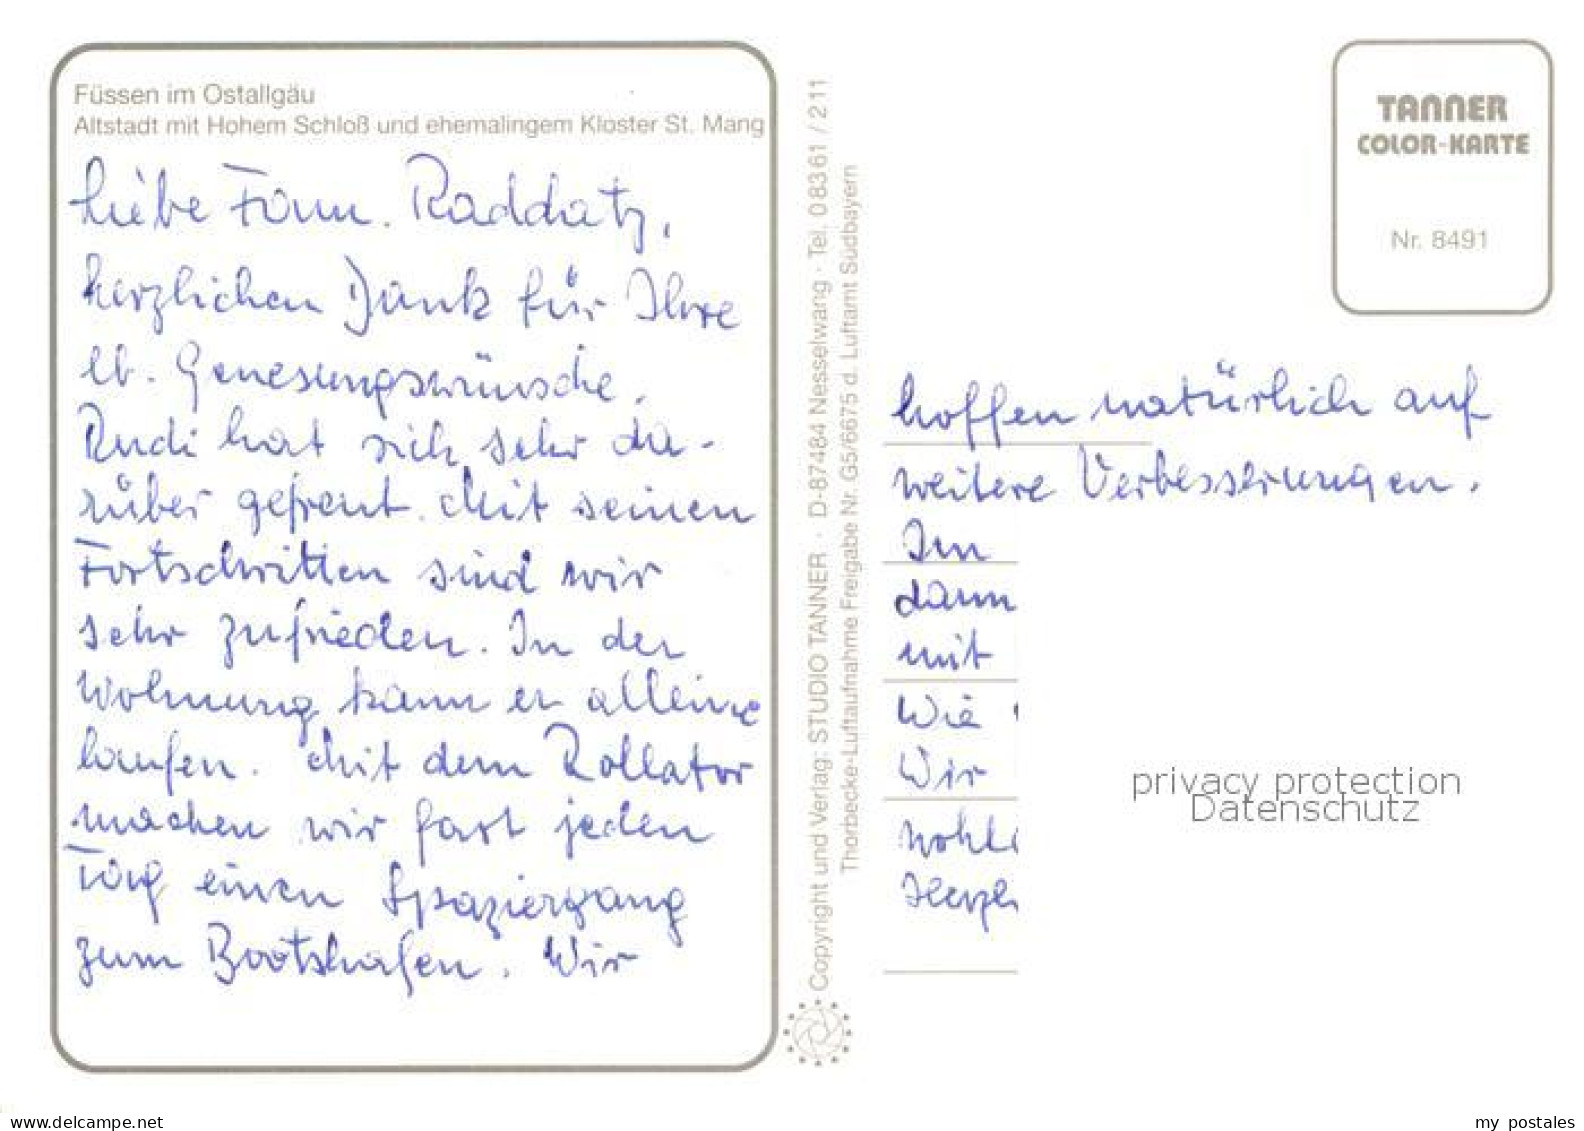 Füssen im Ostallgäu
Altstadt mit Hohem Schloß und ehemalingem Kloster St. Mang
Liebe Fam. Raddatz,
herzlichen Dank für Ihre
lb. Genesungswünsche.
Rudi hat sich sehr da-
rüber gefreut. Mit seinen
Fortschritten sind wir
sehr zufrieden. In der
Wohnung kann er alleine
laufen. Mit dem Rollator
machen wir fast jeden
Tag einen Spaziergang
zum Bootshafen. Wir
Copyright und Verlag: STUDIO TANNER · D-87484 Nesselwang · Tel. 0 83 61 / 2 11
Thorbecke-Luftaufnahme Freigabe Nr. G5/6675 d. Luftamt Südbayern
TANNER
COLOR-KARTE
Nr. 8491
hoffen natürlich auf
weitere Verbesserungen.
Im
dann
mit
Wie
Wir
privacy protection
Datenschutz
www.delcampe.net
my postales